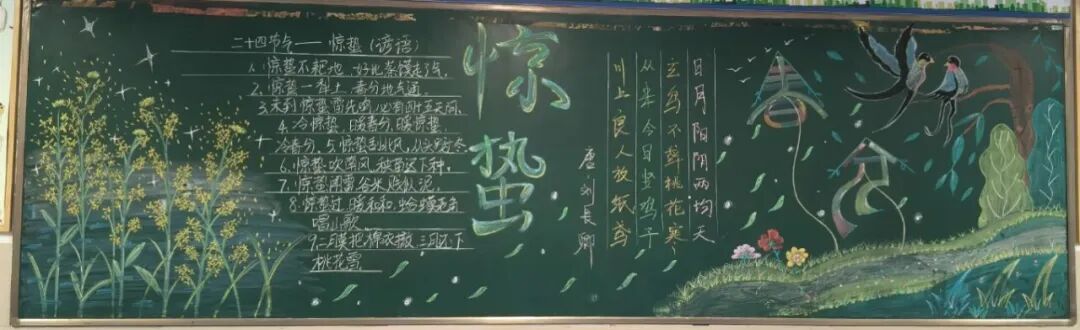 二十四节气——惊蛰(谚语)
1.惊蛰不耙地,好比蒸馍走了气。
2.惊蛰一犁土,春分地气通。
3.未到惊蛰雷先鸣,必有四十五天阴。
4.冷惊蛰,暖春分,暖惊蛰,
冷春分。5.惊蛰刮北风,从头另过冬
6.惊蛰吹南风,秧苗迟下种。
7.惊蛰闻雷谷米贱似泥。
8.惊蛰过,暖和和,蛤蟆老角
唱山歌。
9.二月莫把棉衣撤,三月还下
桃花雪
惊蛰
日月阳阴两均天
玄鸟不辞桃花寒
从来今日竖鸡子
川上良人放纸鸢
唐 刘长卿
春分